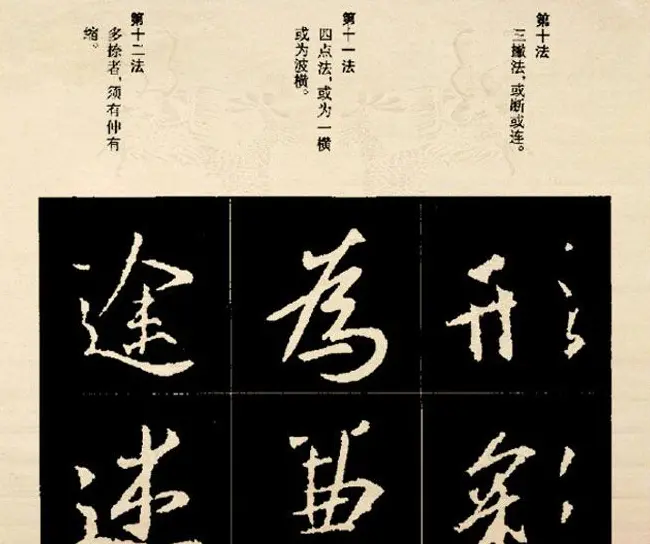 第十法
三撇法，或断或连。
第十一法
四点法，或为一横
或为波横。
第十二法
多捺者，须有伸有
缩。
形
彩
為
途